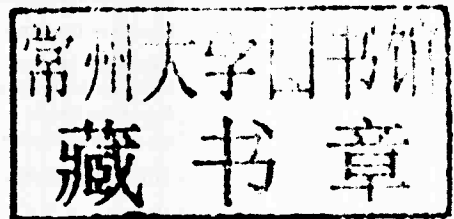 常州大学图书馆
藏书章